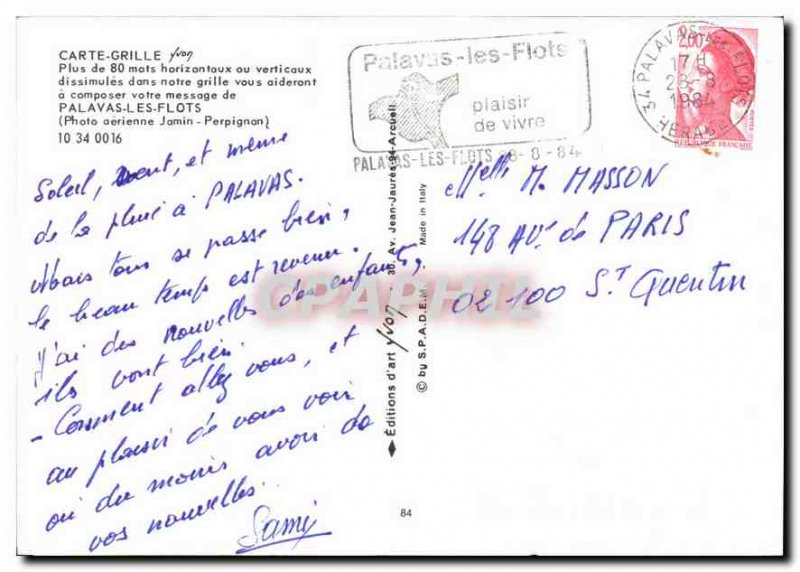 CARTE-GRILLE yvon
Plus de 80 mots horizontaux ou verticaux
dissimulés dans notre grille vous aideront
à composer votre message de
PALAVAS-LES-FLOTS
(Photo aérienne Jamin - Perpignan)
10 34 0016
Soleil, vent, et même
de la pluie à PALAVAS.
Mais tout se passe bien,
le beau temps est revenu.
J'ai des nouvelles des enfants,
ils vont bien.
- Comment allez vous, et
au plaisir de vous voir
ou du moins avoir de
vos nouvelles.
Samy
Editions d'art yvon - 30, Av. Jean-Jaurès-94-Arcueil
© by S.P.A.D.E.M. Made in Italy
84
Palavas-les-Flots
plaisir
de vivre
PALAVAS-LES-FLOTS 28-8-84
34 PALAVAS LES FLOTS
17H
28-8
1984
HERAULT
2,00
REPUBLIQUE FRANÇAISE
Melle M. MASSON
148 AV. de PARIS
02100 ST Quentin
CPAPHIL